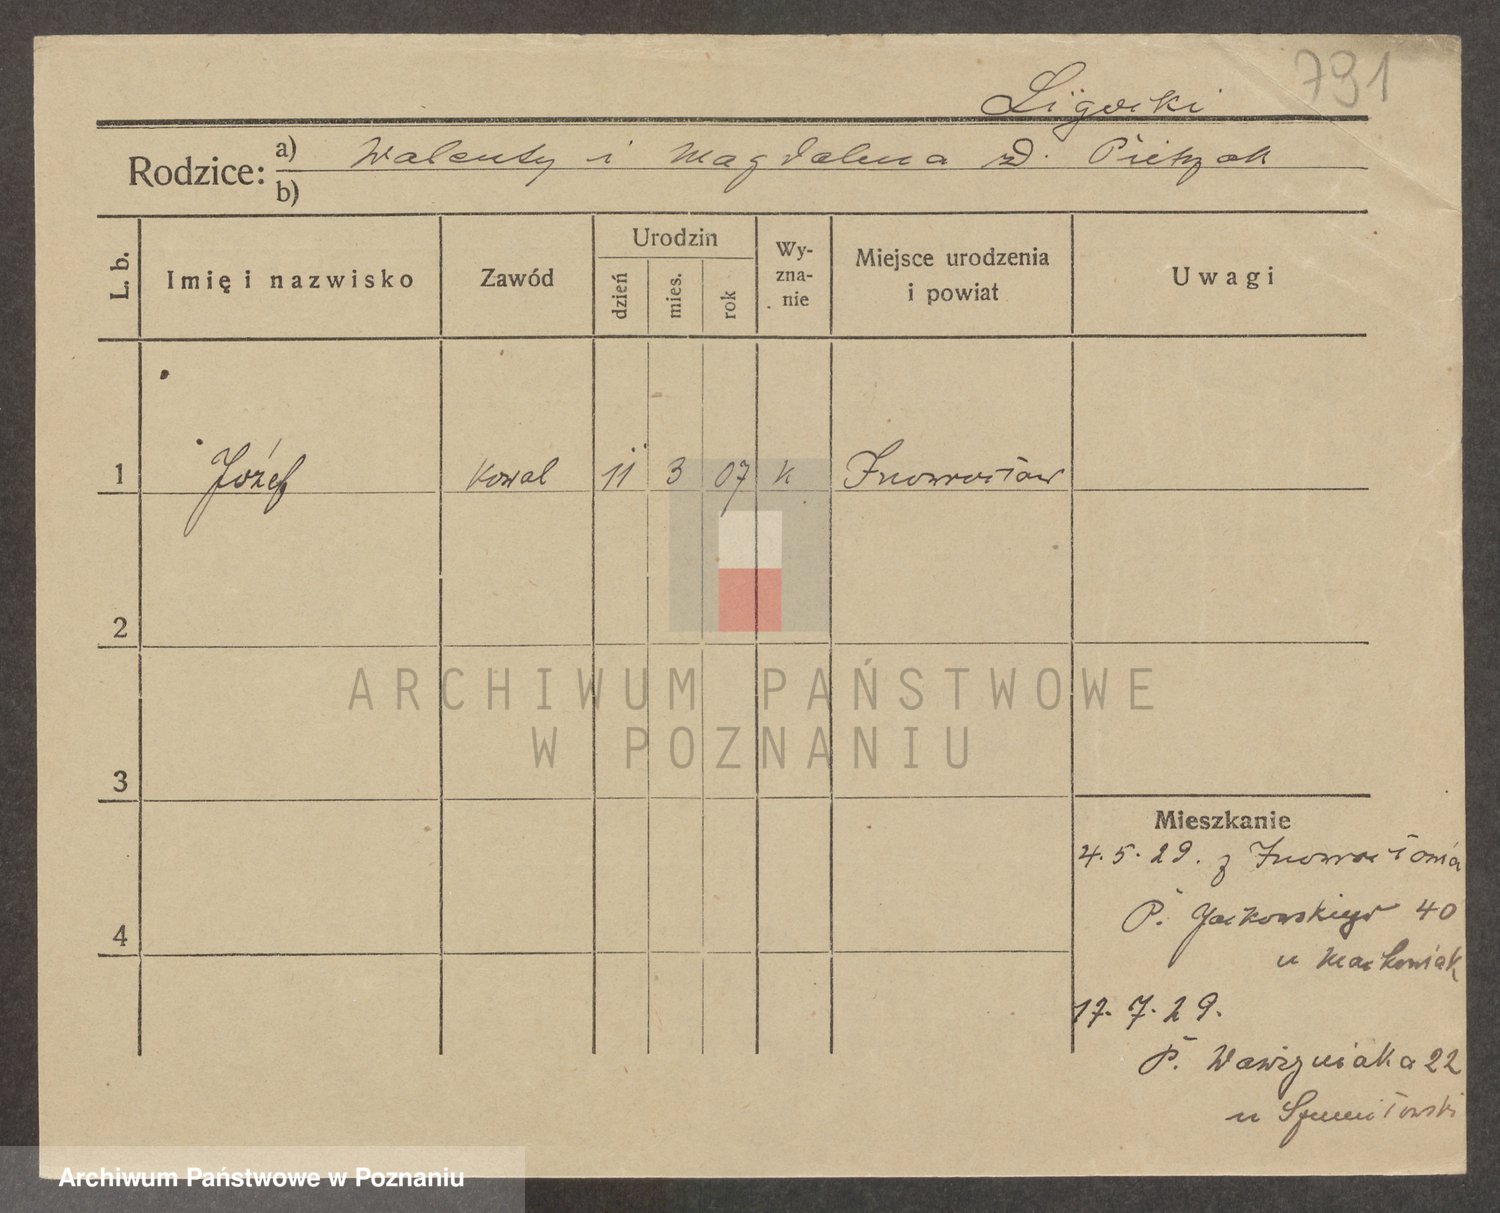 791
Ligocki
Rodzice: a) Walenty i Magdalena zd. Pietrzak
b)
L. b. Imię i nazwisko Zawód Urodzin dzień mies. rok Wy-zna-nie Miejsce urodzenia i powiat Uwagi
1 Józef kowal 11 3 07 k Inowrocław
2
3
4
Mieszkanie
4.5.29. z Inowrocławia
P. Jackowskiego 40
u Maćkowiak
17.7.29.
P. Wawrzyniaka 22
u Szumiłowski
ARCHIWUM PAŃSTWOWE
W POZNANIU
Archiwum Państwowe w Poznaniu